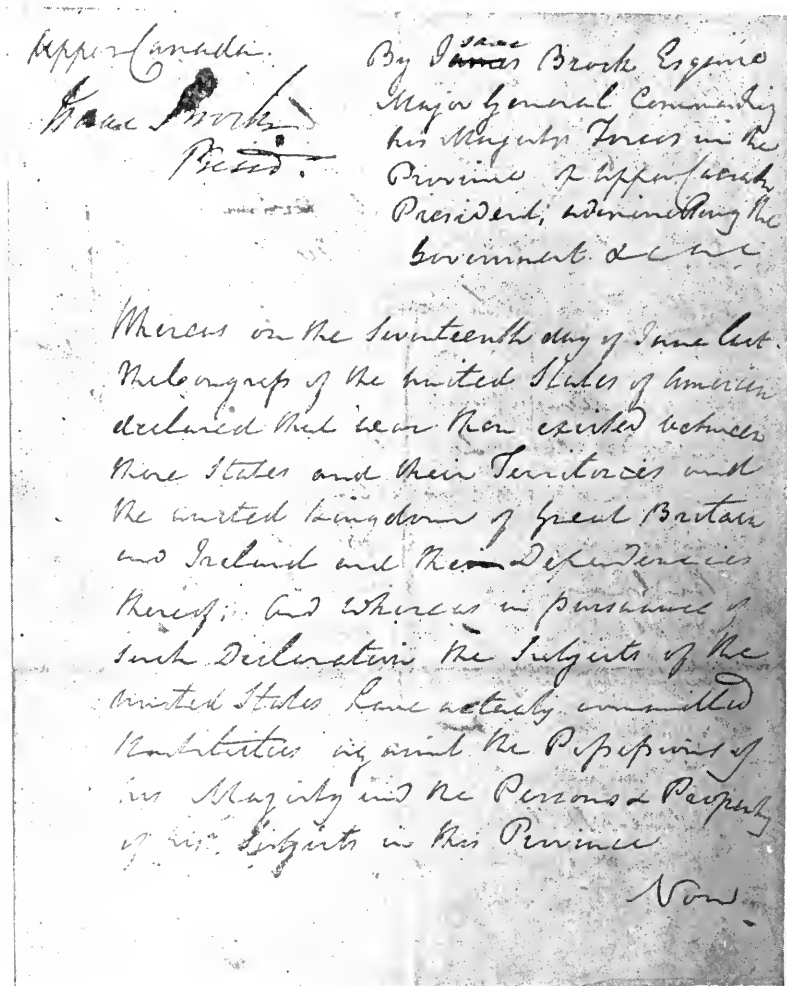 Upper Canada.
Isaac Brock
Presid.
By Isaac Brock Esquire
Major General Commanding
his Majesty's Forces in the
Province of Upper Canada
President, administering the
Government &c &c &c
Whereas on the Seventeenth day of June last
the Congress of the united States of America
declared that war then existed between
those States and their Territories and
the united kingdom of Great Britain
and Ireland and the Dependencies
thereof: And whereas in pursuance of
such Declaration the Subjects of the
united States have actually committed
Hostilities against the Possessions of
his Majesty and the Persons & Property
of his Subjects in this Province
Now